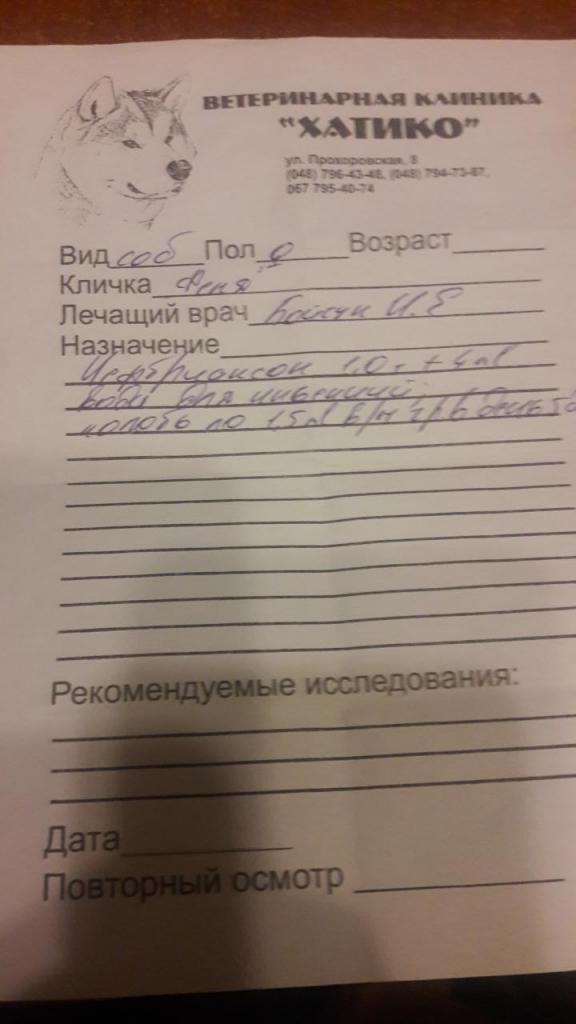 ВЕТЕРИНАРНАЯ КЛИНИКА
"ХАТИКО"
ул. Прохоровская, 8
(048) 796-43-48, (048) 794-73-87,
067 795-40-74
Вид соб Пол Возраст
Кличка Феня
Лечащий врач И.Е
Назначение
Цефтриаксон 1,0 + 4 мл
воды для инъекций,
колоть по 1,5 мл в/м
Рекомендуемые исследования:
Дата
Повторный осмотр